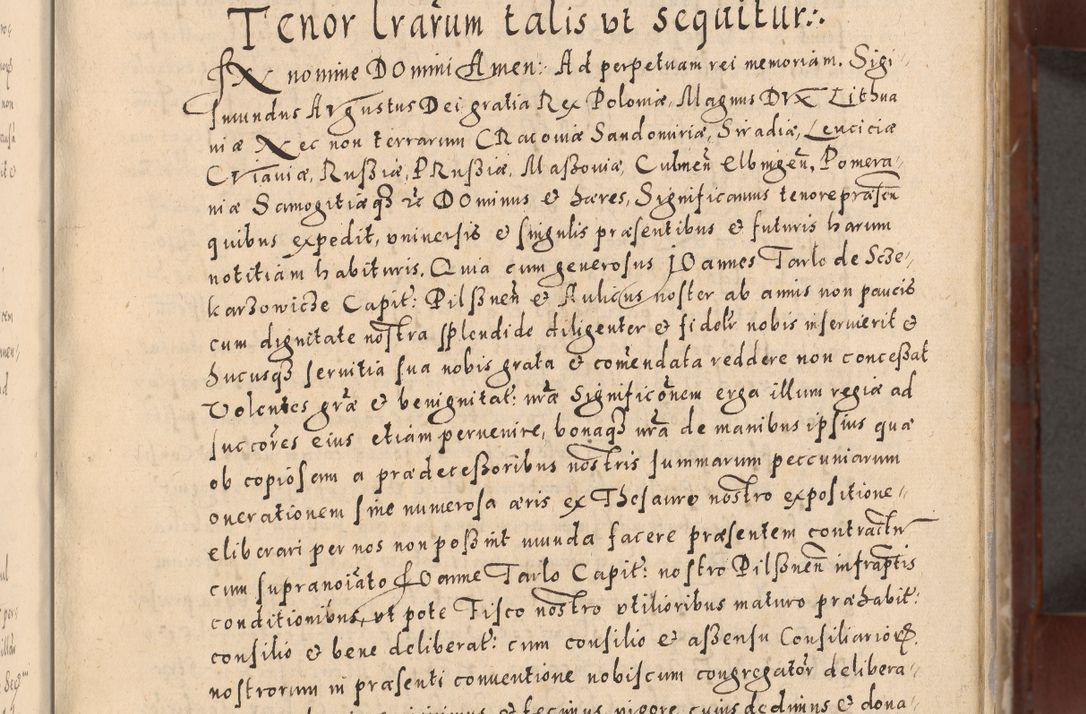 Tenor lrarum talis ut sequitur:.
In nomine Domini Amen: Ad perpetuam rei memoriam. Sigi-
smundus Augustus Dei gratia Rex Poloniæ, Magnus Dux Lithua
niæ Nec non terrarum Cracoviæ Sandomiriæ, Siradiæ, Lenciciæ
Cuiaviæ, Rußiæ, Prußiæ, Maßoviæ, Culmeñ Elbingeñ, Pomera-
niæ Samogitiæq3 &c Dominus & hæres, Significamus tenore præsen
quibus expedit, universis & singulis præsentibus & futuris harum
notitiam habituris. Quia cum generosus Joannes Tarlo de Scze-
karzowicze Capit: Pilßneñ & Aulicus noster ab amis non paucis
cum dignitate nostra splendide diligenter & fidelr nobis inservierit &
hucusq3 servitia sua nobis grata & comendata reddere non conceßat
Volentes græ & benignitat: nræ Significõnem erga illum regiæ ad
succõres eius etiam pervenire, bonaq3 nra de manibus ipsius quæ
ob copiosem a prædeceßoribus nostris summarum peccuniarum
onerationem sine numerosa æris ex Thesauro nostro expositione
eliberari per nos non poßint munda facere præsentem contractu
cum supranoiato Joanne Tarlo Capit: nostro Pilßneñ infraptis
conditionibus, ut pote Fisco nostro utilioribus maturo præhabit:
consilio & bene deliberat: cum consilio & aßensu Consiliarior
nostrorum in præsenti conventione nobiscum congregator delibera-
& fecimus vigore cuius dedimus & dona-